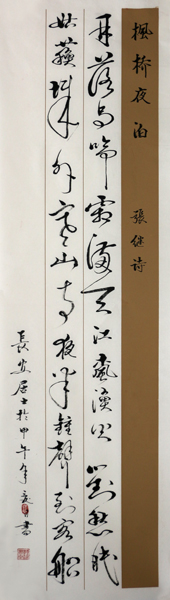 楓橋夜泊 張继詩
月落烏啼霜滿天江楓漁火對愁眠
姑蘇城外寒山寺夜半鐘聲到客船
長安居士於甲午年夏書